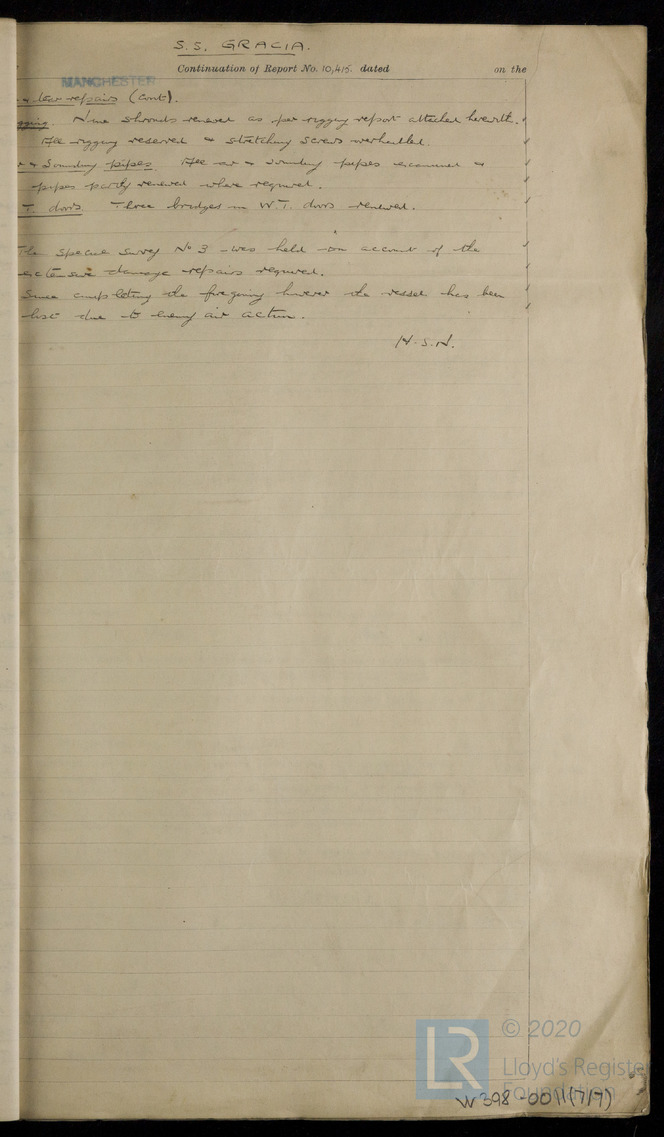 S.S. GRACIA.
Continuation of Report No. 10,415. dated on the
MANCHESTER
& tear repairs (Cont).
gging. Nine shrouds renewed as per rigging report attached herewith.
All rigging reserved & stretching screws overhauled.
r & Sounding pipes. All air & sounding pipes examined &
pipes partly renewed where required.
T. doors. Three bridges in W.T. doors renewed.
The Special Survey No 3 was held on account of the
extensive damage repairs required.
Since completing the foregoing however the vessel has been
lost due to enemy air action.
H.S.N.
LR
© 2020
Lloyd's Register
Foundation
W398-0011(7/7)